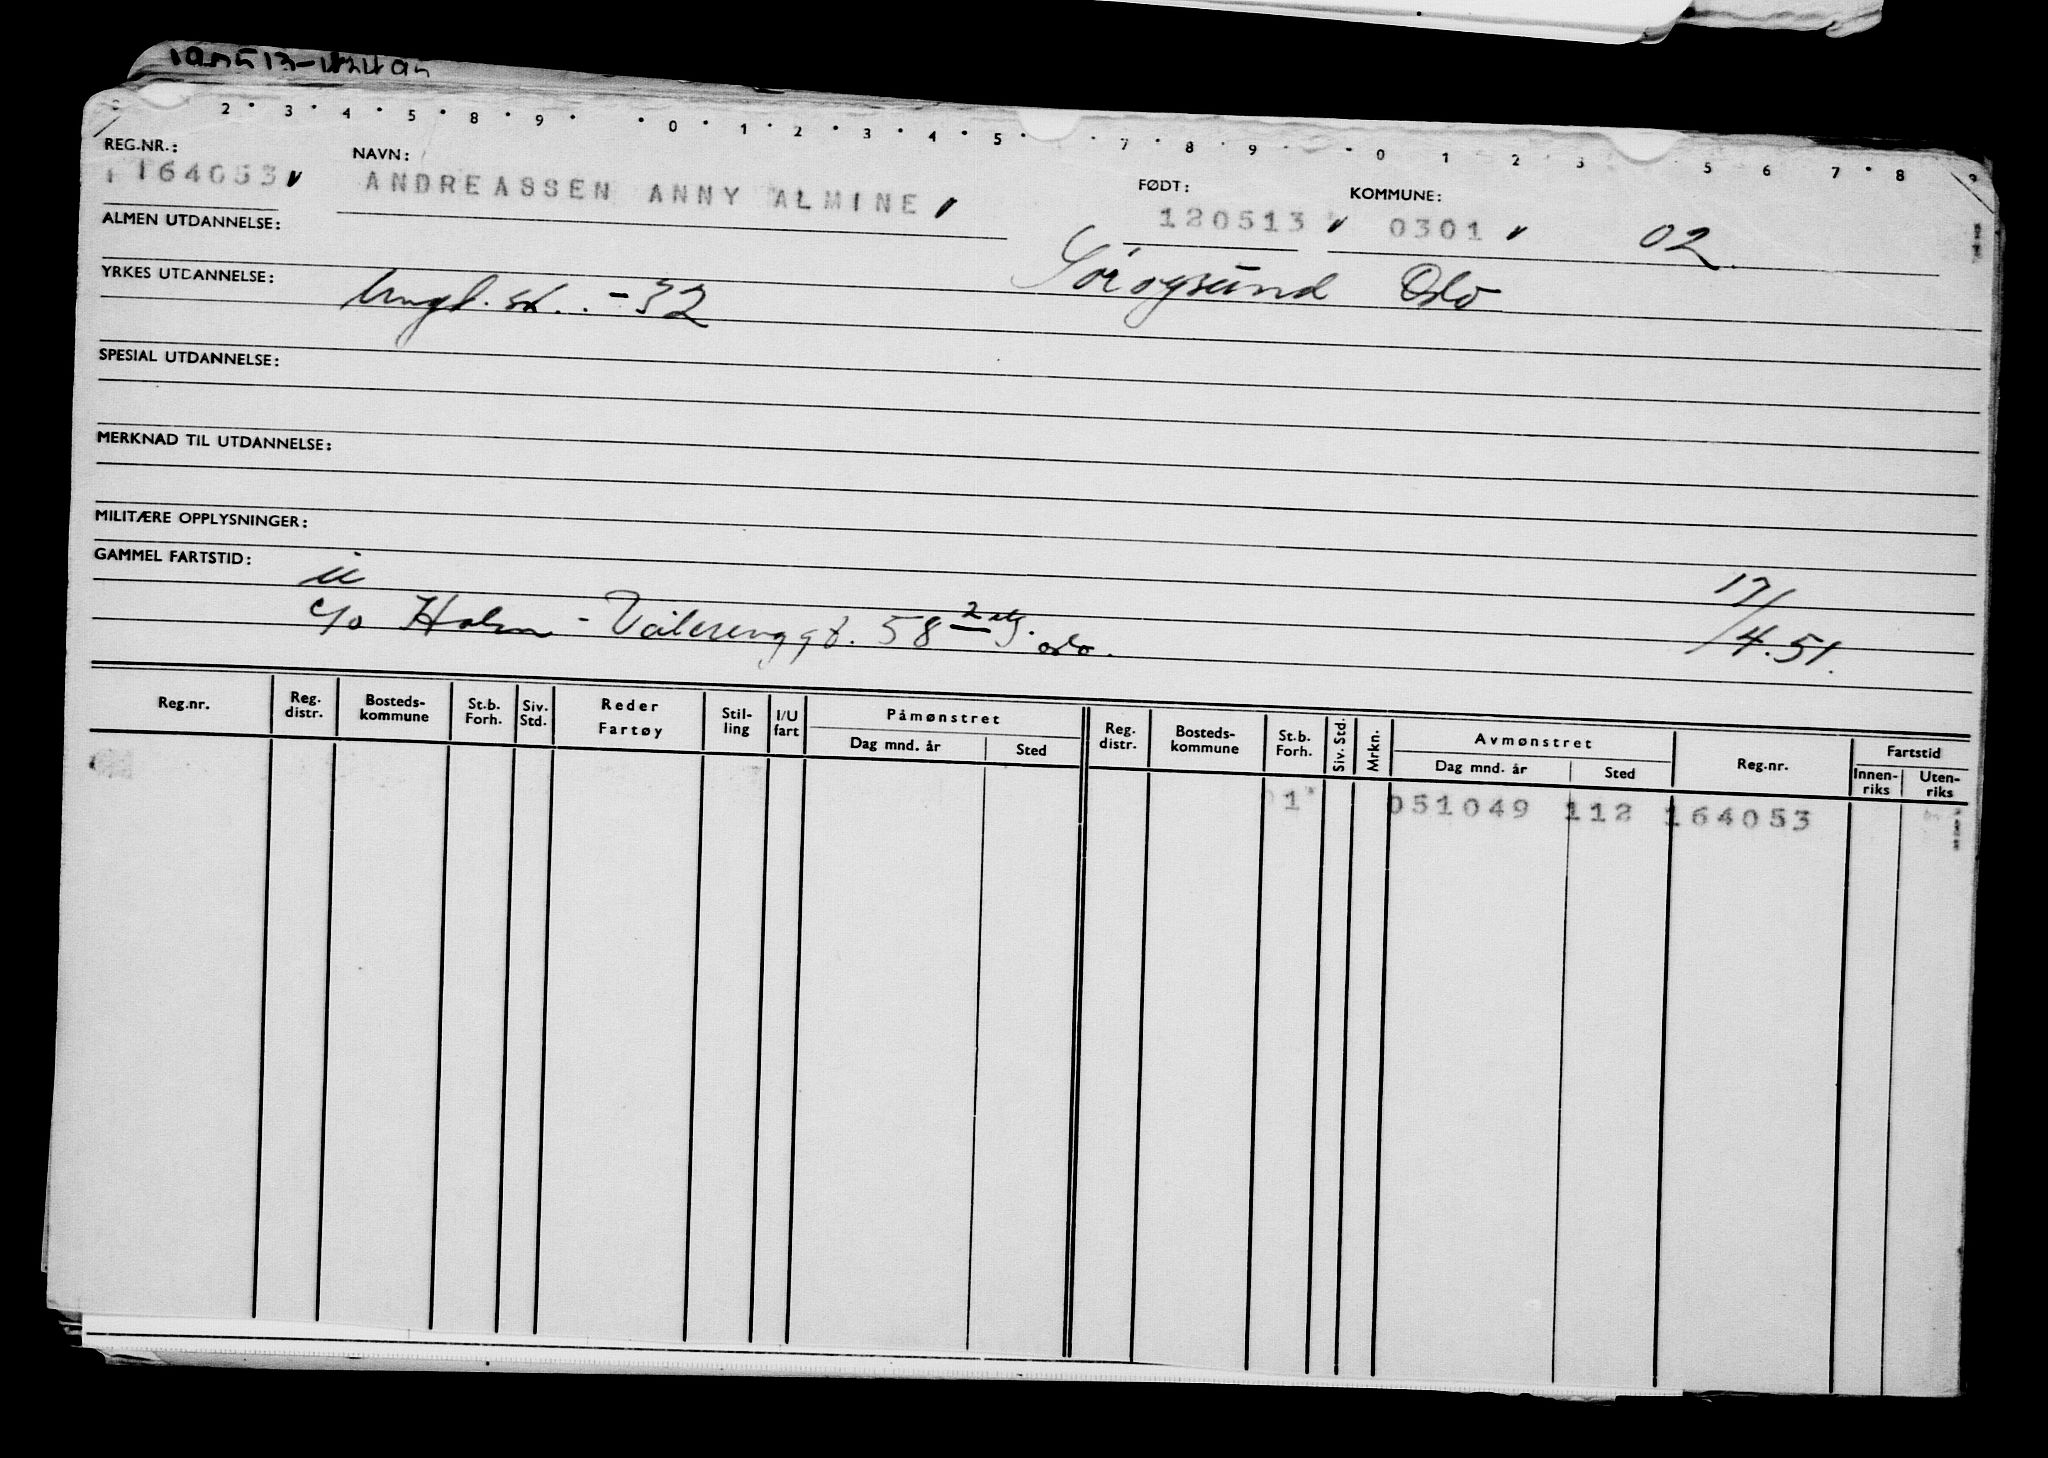 2 3 4 5 8 9 0 1 2 3 4 5 7 8 9 0 1 2 3 5 6 7 8
REG.NR.: NAVN: FØDT: KOMMUNE:
164053 ANDREASSEN ANNY ALMINE 120513 0301 02
ALMEN UTDANNELSE:
YRKES UTDANNELSE: Ungd. sk. -32 Oslo
SPESIAL UTDANNELSE:
MERKNAD TIL UTDANNELSE:
MILITÆRE OPPLYSNINGER:
GAMMEL FARTSTID:
c/o Holm - Vålerenggt. 58 2 etg. Oslo. 17/4.51.
Reg.nr. Reg. distr. Bosteds-kommune St.b. Forh. Siv. Std. Reder Fartøy Stil-ling I/U fart Påmønstret Dag mnd. år Sted Reg. distr. Bosteds-kommune St.b. Forh. Siv. Std. Mrkn. Avmønstret Dag mnd. år Sted Reg.nr. Fartstid Innen-riks Uten-riks
01 051049 112 164053